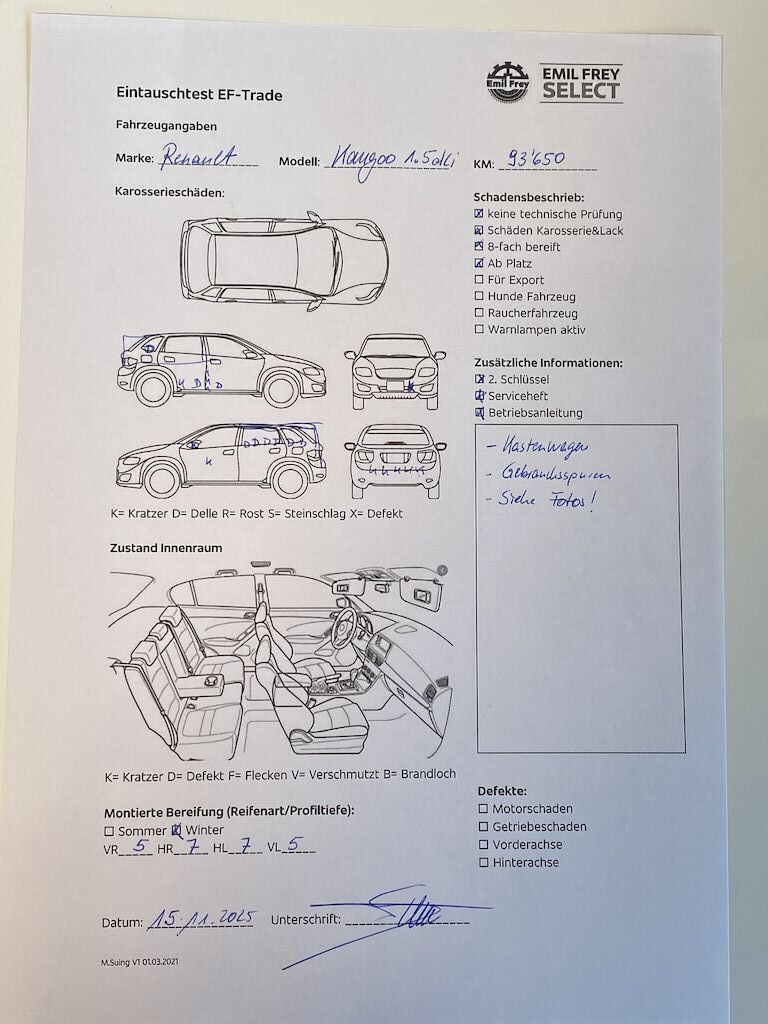 Emil Frey
EMIL FREY
SELECT
Eintauschtest EF-Trade
Fahrzeugangaben
Marke: Renault Modell: Kangoo 1.5 dCi KM: 93'650
Karosserieschäden:
Schadensbeschrieb:
☒ keine technische Prüfung
☒ Schäden Karosserie&Lack
☒ 8-fach bereift
☒ Ab Platz
☐ Für Export
☐ Hunde Fahrzeug
☐ Raucherfahrzeug
☐ Warnlampen aktiv
D
K D K D
K
Zusätzliche Informationen:
☒ 2. Schlüssel
☒ Serviceheft
☒ Betriebsanleitung
D D D D D D
K
K K K K K
- Kastenwagen
- Gebrauchsspuren
- Siehe Fotos!
K= Kratzer D= Delle R= Rost S= Steinschlag X= Defekt
Zustand Innenraum
K= Kratzer D= Defekt F= Flecken V= Verschmutzt B= Brandloch
Montierte Bereifung (Reifenart/Profiltiefe):
☐ Sommer ☒ Winter
VR 5 HR 7 HL 7 VL 5
Defekte:
☐ Motorschaden
☐ Getriebeschaden
☐ Vorderachse
☐ Hinterachse
Datum: 15.11.2025 Unterschrift:
M.Suing V1 01.03.2021